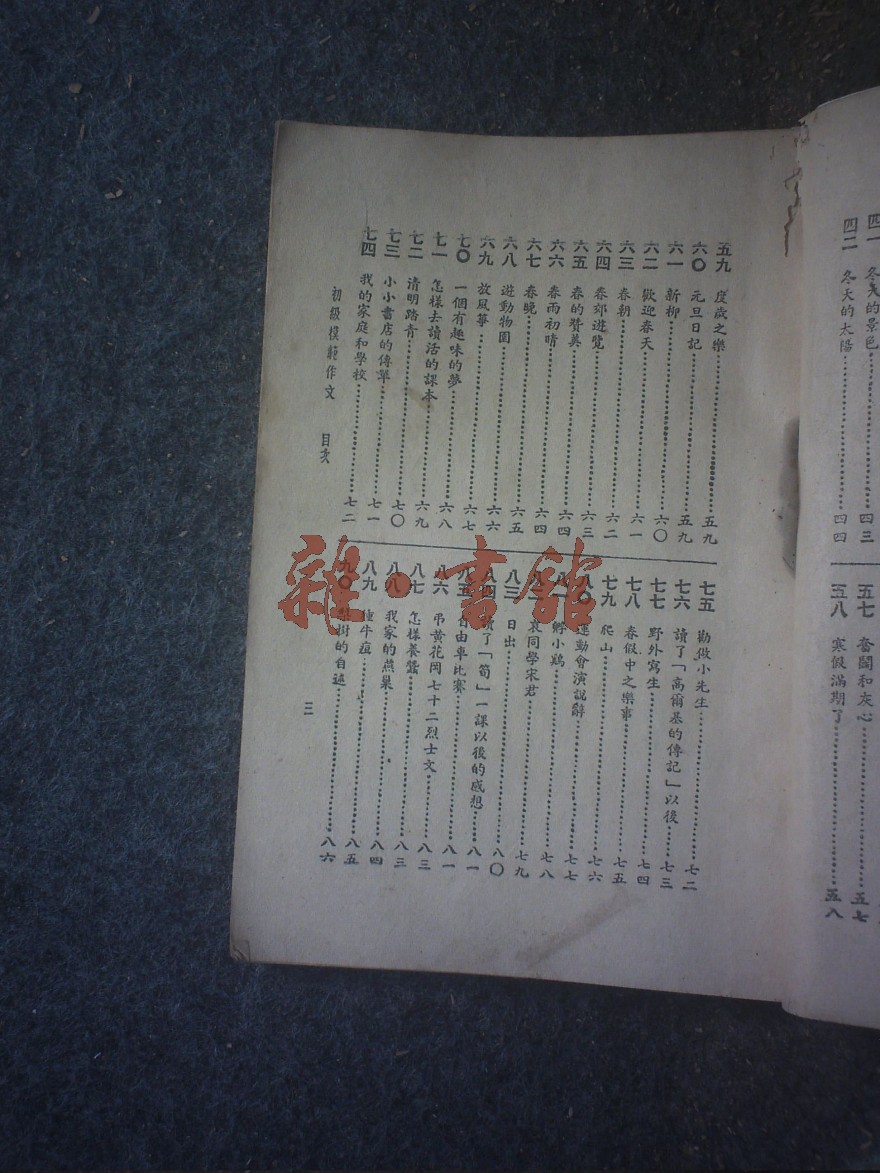 四一 冬天的景色 四三
四二 冬天的太陽 四四
五七 奮鬭和灰心 五七
五八 寒假滿期了 五八
五九 度歲之樂 五九
六〇 元旦日記 五九
六一 新柳 六〇
六二 歡迎春天 六一
六三 春朝 六二
六四 春郊遊覽 六三
六五 春的贊美 六四
六六 春雨初晴 六四
六七 春晚 六五
六八 遊動物園 六六
六九 放風箏 六七
七〇 一個有趣味的夢 六八
七一 怎樣去讀活的課本 六九
七二 清明踏青 七〇
七三 小小書店的傳單 七一
七四 我的家庭和學校 七二
七五 勸做小先生 七二
七六 讀了「高爾基的傳記」以後 七三
七七 野外寫生 七四
七八 春假中之樂事 七五
七九 爬山 七六
八〇 運動會演說辭 七七
八一 孵小鷄 七八
八二 哀同學宋君 七九
八三 日出 八〇
八四 讀了「筍」一課以後的感想 八一
八五 自由車比賽 八一
八六 弔黃花岡七十二烈士文 八三
八七 怎樣養蠶 八三
八八 我家的燕巢 八四
八九 種牛痘 八五
九〇 樹的自述 八六
初級模範作文 目次
三
雜·書館